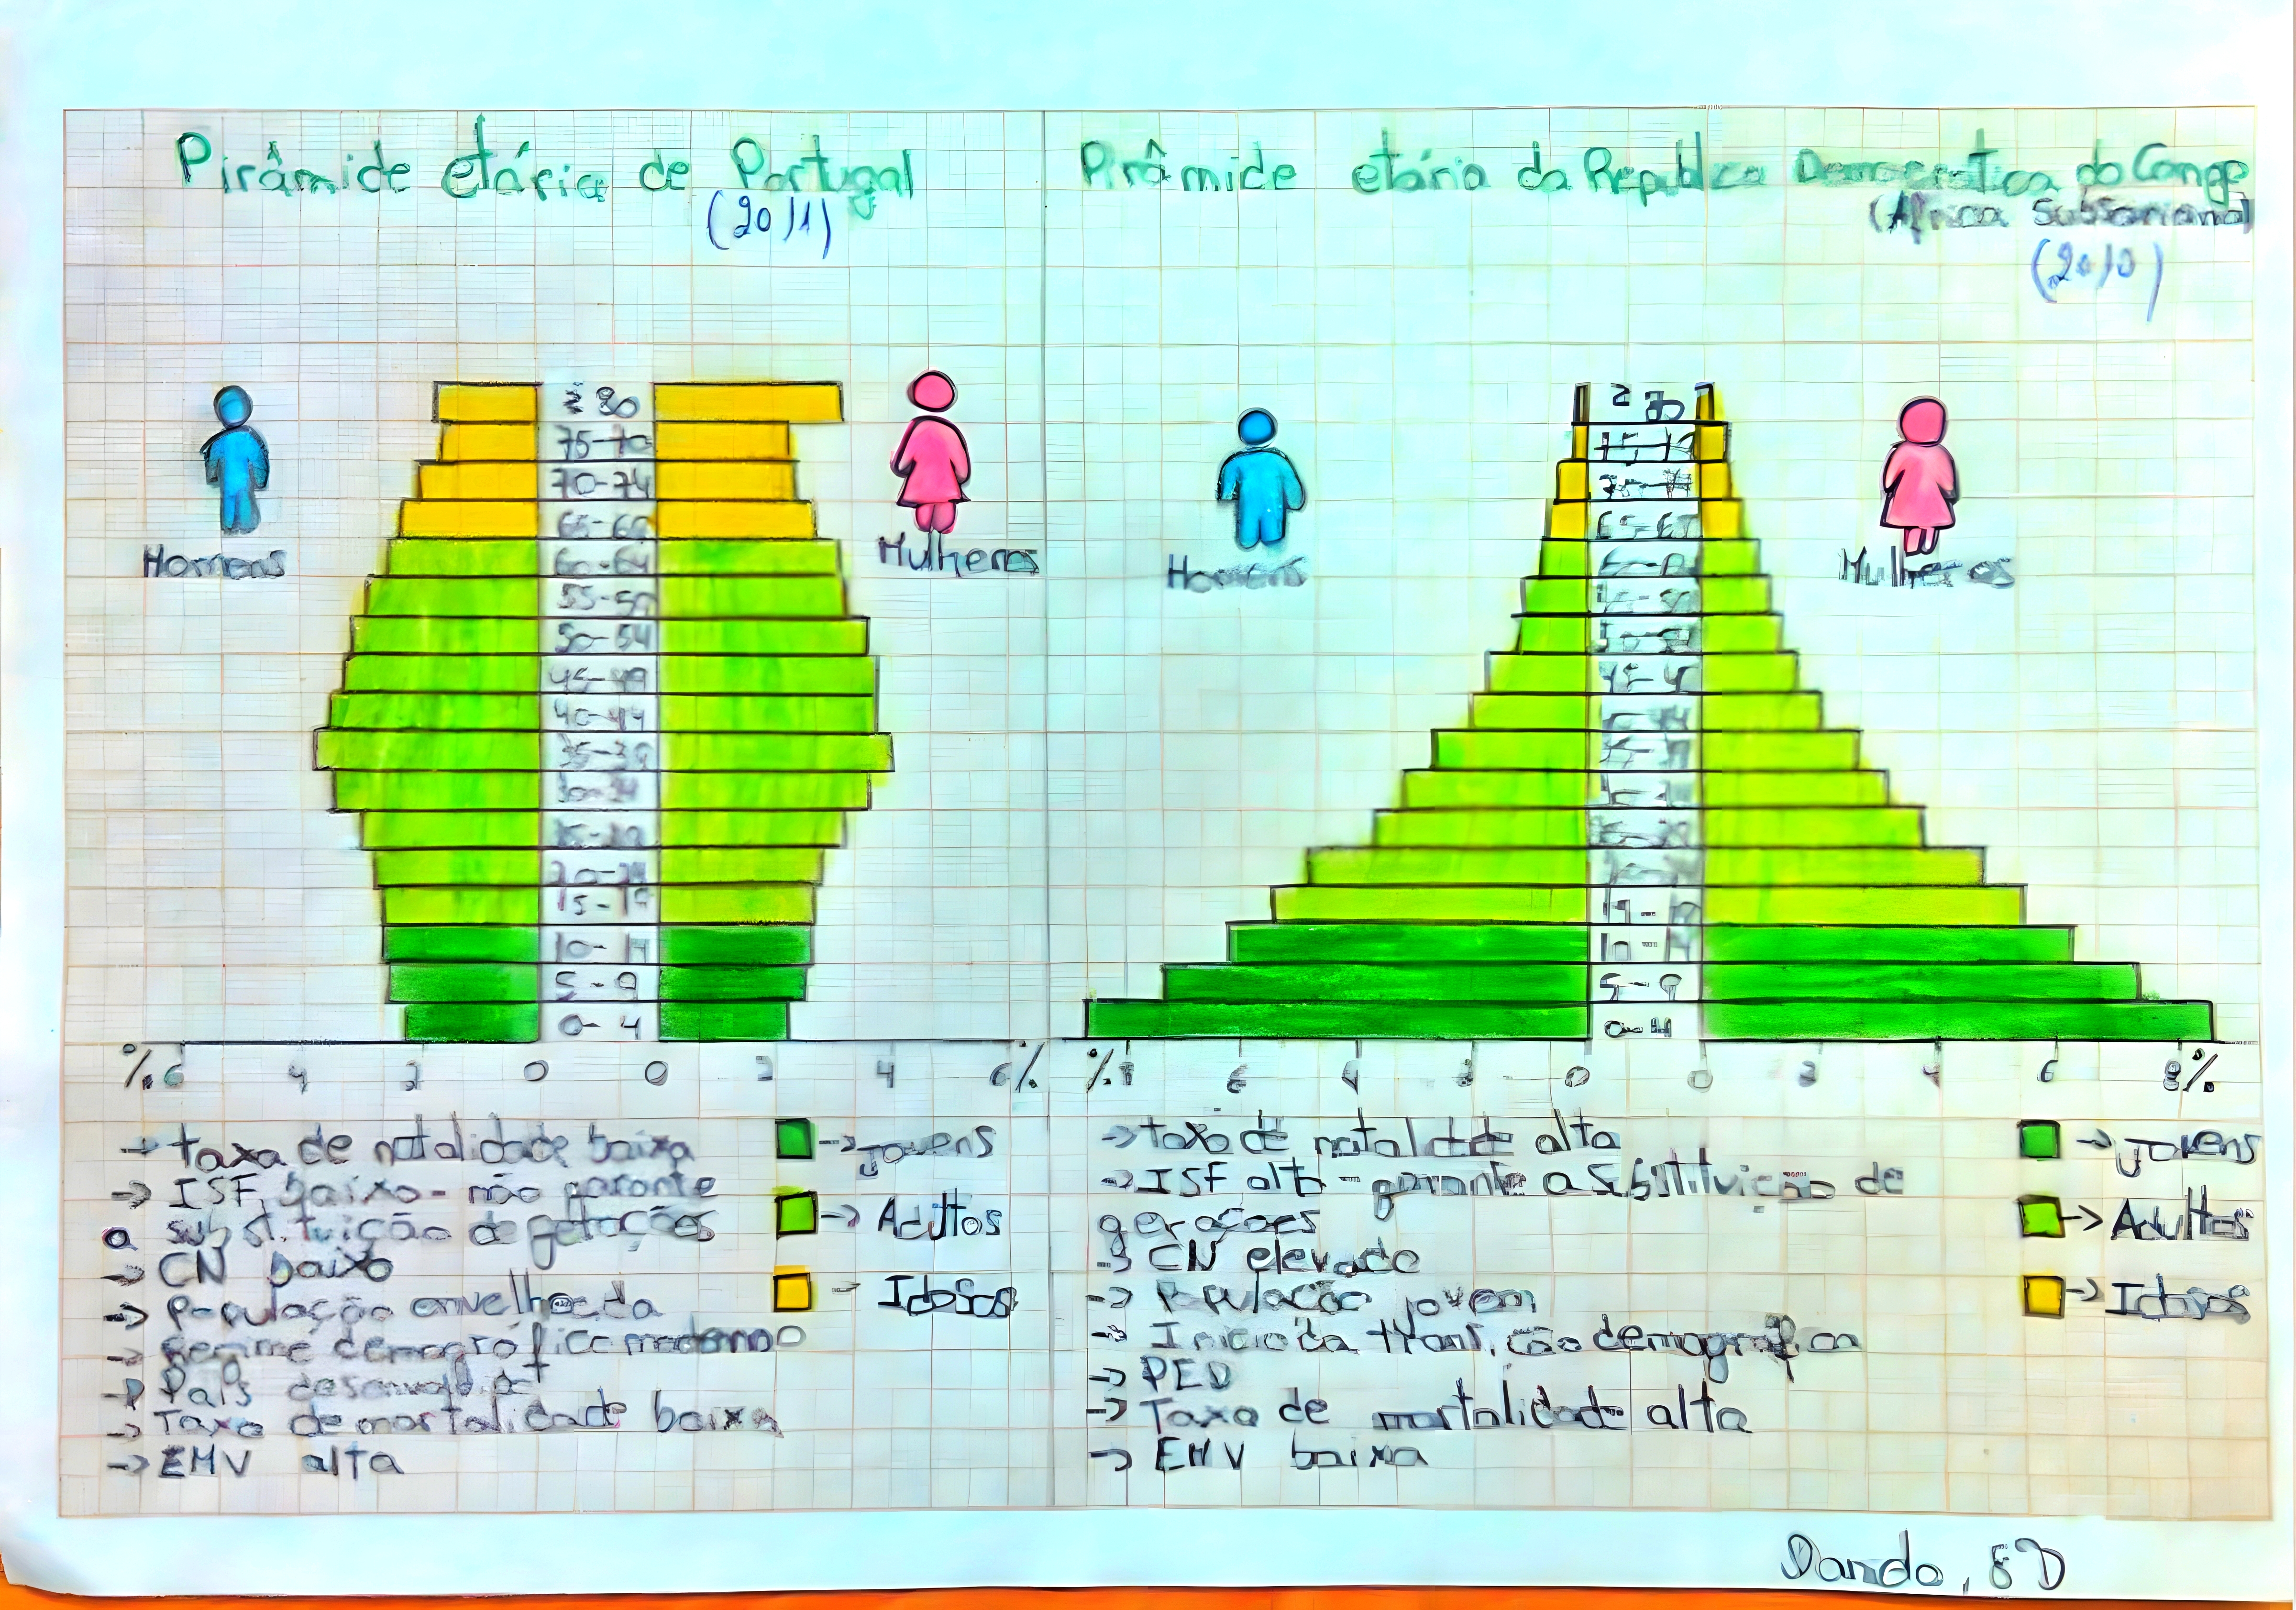 Pirâmide etária de Portugal
(2011)
Homens
Mulheres
75-
70-74
65-69
60-64
55-59
50-54
45-49
40-44
35-39
15-19
10-14
5-9
0-4
% 6 4 2 0 0 2 4 6%
→ taxa de natalidade baixa
→ ISF baixo - não garante
a substituição de gerações
→ CN baixo
→ População envelhecida
→ Regime demográfico moderno
→ País
→ Taxa de mortalidade baixa
→ EMV alta
→ Jovens
→ Adultos
→ Idosos
Pirâmide etária da República Democrática do Congo
(África Subsariana)
(2010)
Homens
Mulheres
5-9
0-4
% 8 6 4 2 0 0 2 4 6 8%
→ taxa de natalidade alta
→ ISF alto - garante a substituição de
gerações
→ CN elevado
→ População jovem
→ Início da transição demográfica
→ PED
→ Taxa de mortalidade alta
→ EMV baixa
→ Jovens
→ Adultos
→ Idosos
8D